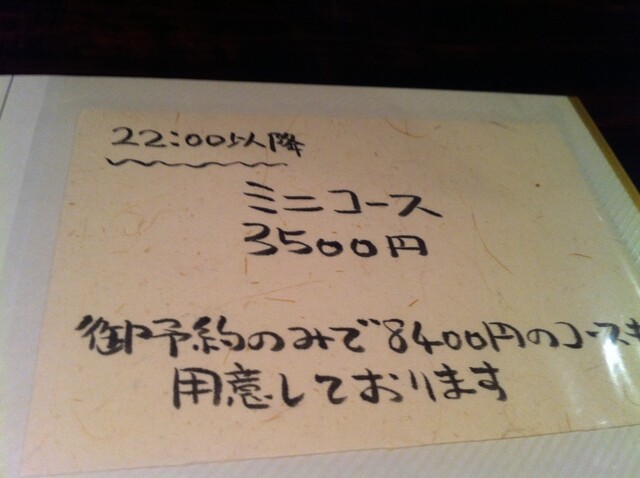 22:00以降
ミニコース
3500円
御予約のみで8400円のコースも
用意しております